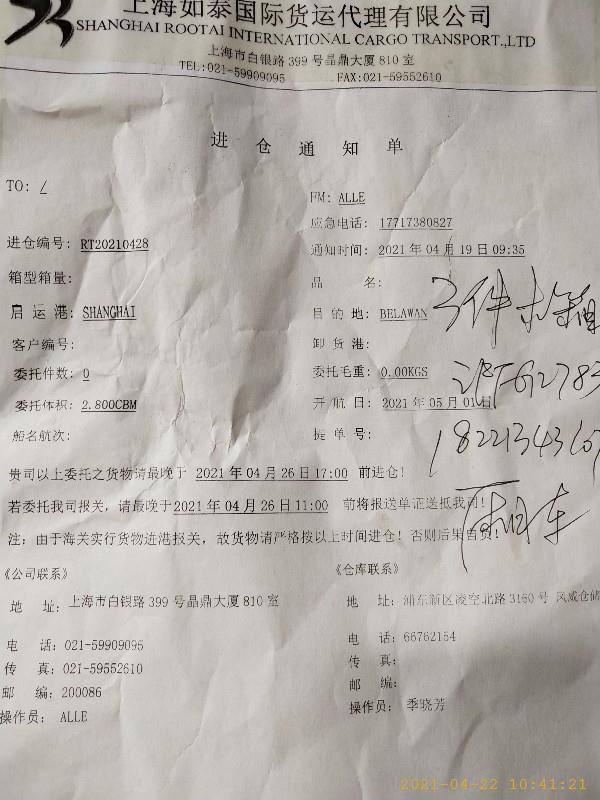 上海如泰国际货运代理有限公司
SHANGHAI ROOTAI INTERNATIONAL CARGO TRANSPORT.,LTD
上海市白银路 399 号晶鼎大厦 810 室
TEL:021-59909095 FAX:021-59552610
进仓通知单
TO: /
FM: ALLE
应急电话: 17717380827
进仓编号: RT20210428
通知时间: 2021 年 04 月 19 日 09:35
箱型箱量:
品 名:
3件木箱
启 运 港: SHANGHAI
目 的 地: BELAWAN
客户编号:
卸 货 港:
委托件数: 0
委托毛重: 0.00KGS
委托体积: 2.800CBM
开 航 日: 2021 年 05 月 01 日
船名航次:
提 单 号:
贵司以上委托之货物请最晚于 2021 年 04 月 26 日 17:00 前进仓!
若委托我司报关, 请最晚于2021 年 04 月 26 日 11:00 前将报送单证送抵我司!
注: 由于海关实行货物进港报关, 故货物请严格按以上时间进仓! 否则后果自负!
《公司联系》
地 址: 上海市白银路 399 号晶鼎大厦 810 室
电 话: 021-59909095
传 真: 021-59552610
邮 编: 200086
操作员: ALLE
《仓库联系》
地 址: 浦东新区凌空北路 3160 号 风威仓储
电 话: 66762154
传 真:
邮 编:
操作员: 季晓芳
2021-04-22 10:41:21